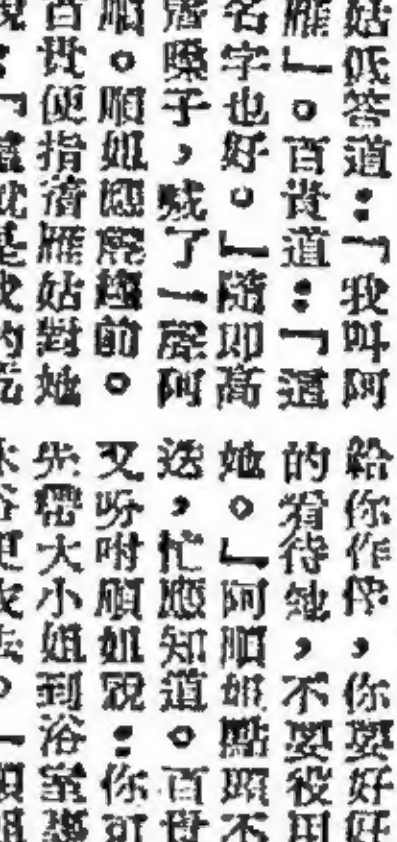 姑低答道：「我叫阿
雁」。百貴道：「這
名字也好。」隨即高
嗓子，喊了一聲阿
順。順姐應聲趨前。
百貴便指着雁姑對她
給你作伴，你要好好
的看待她，不要役用
她。」阿順姐點頭不
迭，忙應知道。百貴
又吩咐順姐說：你可
先帶大小姐到浴室